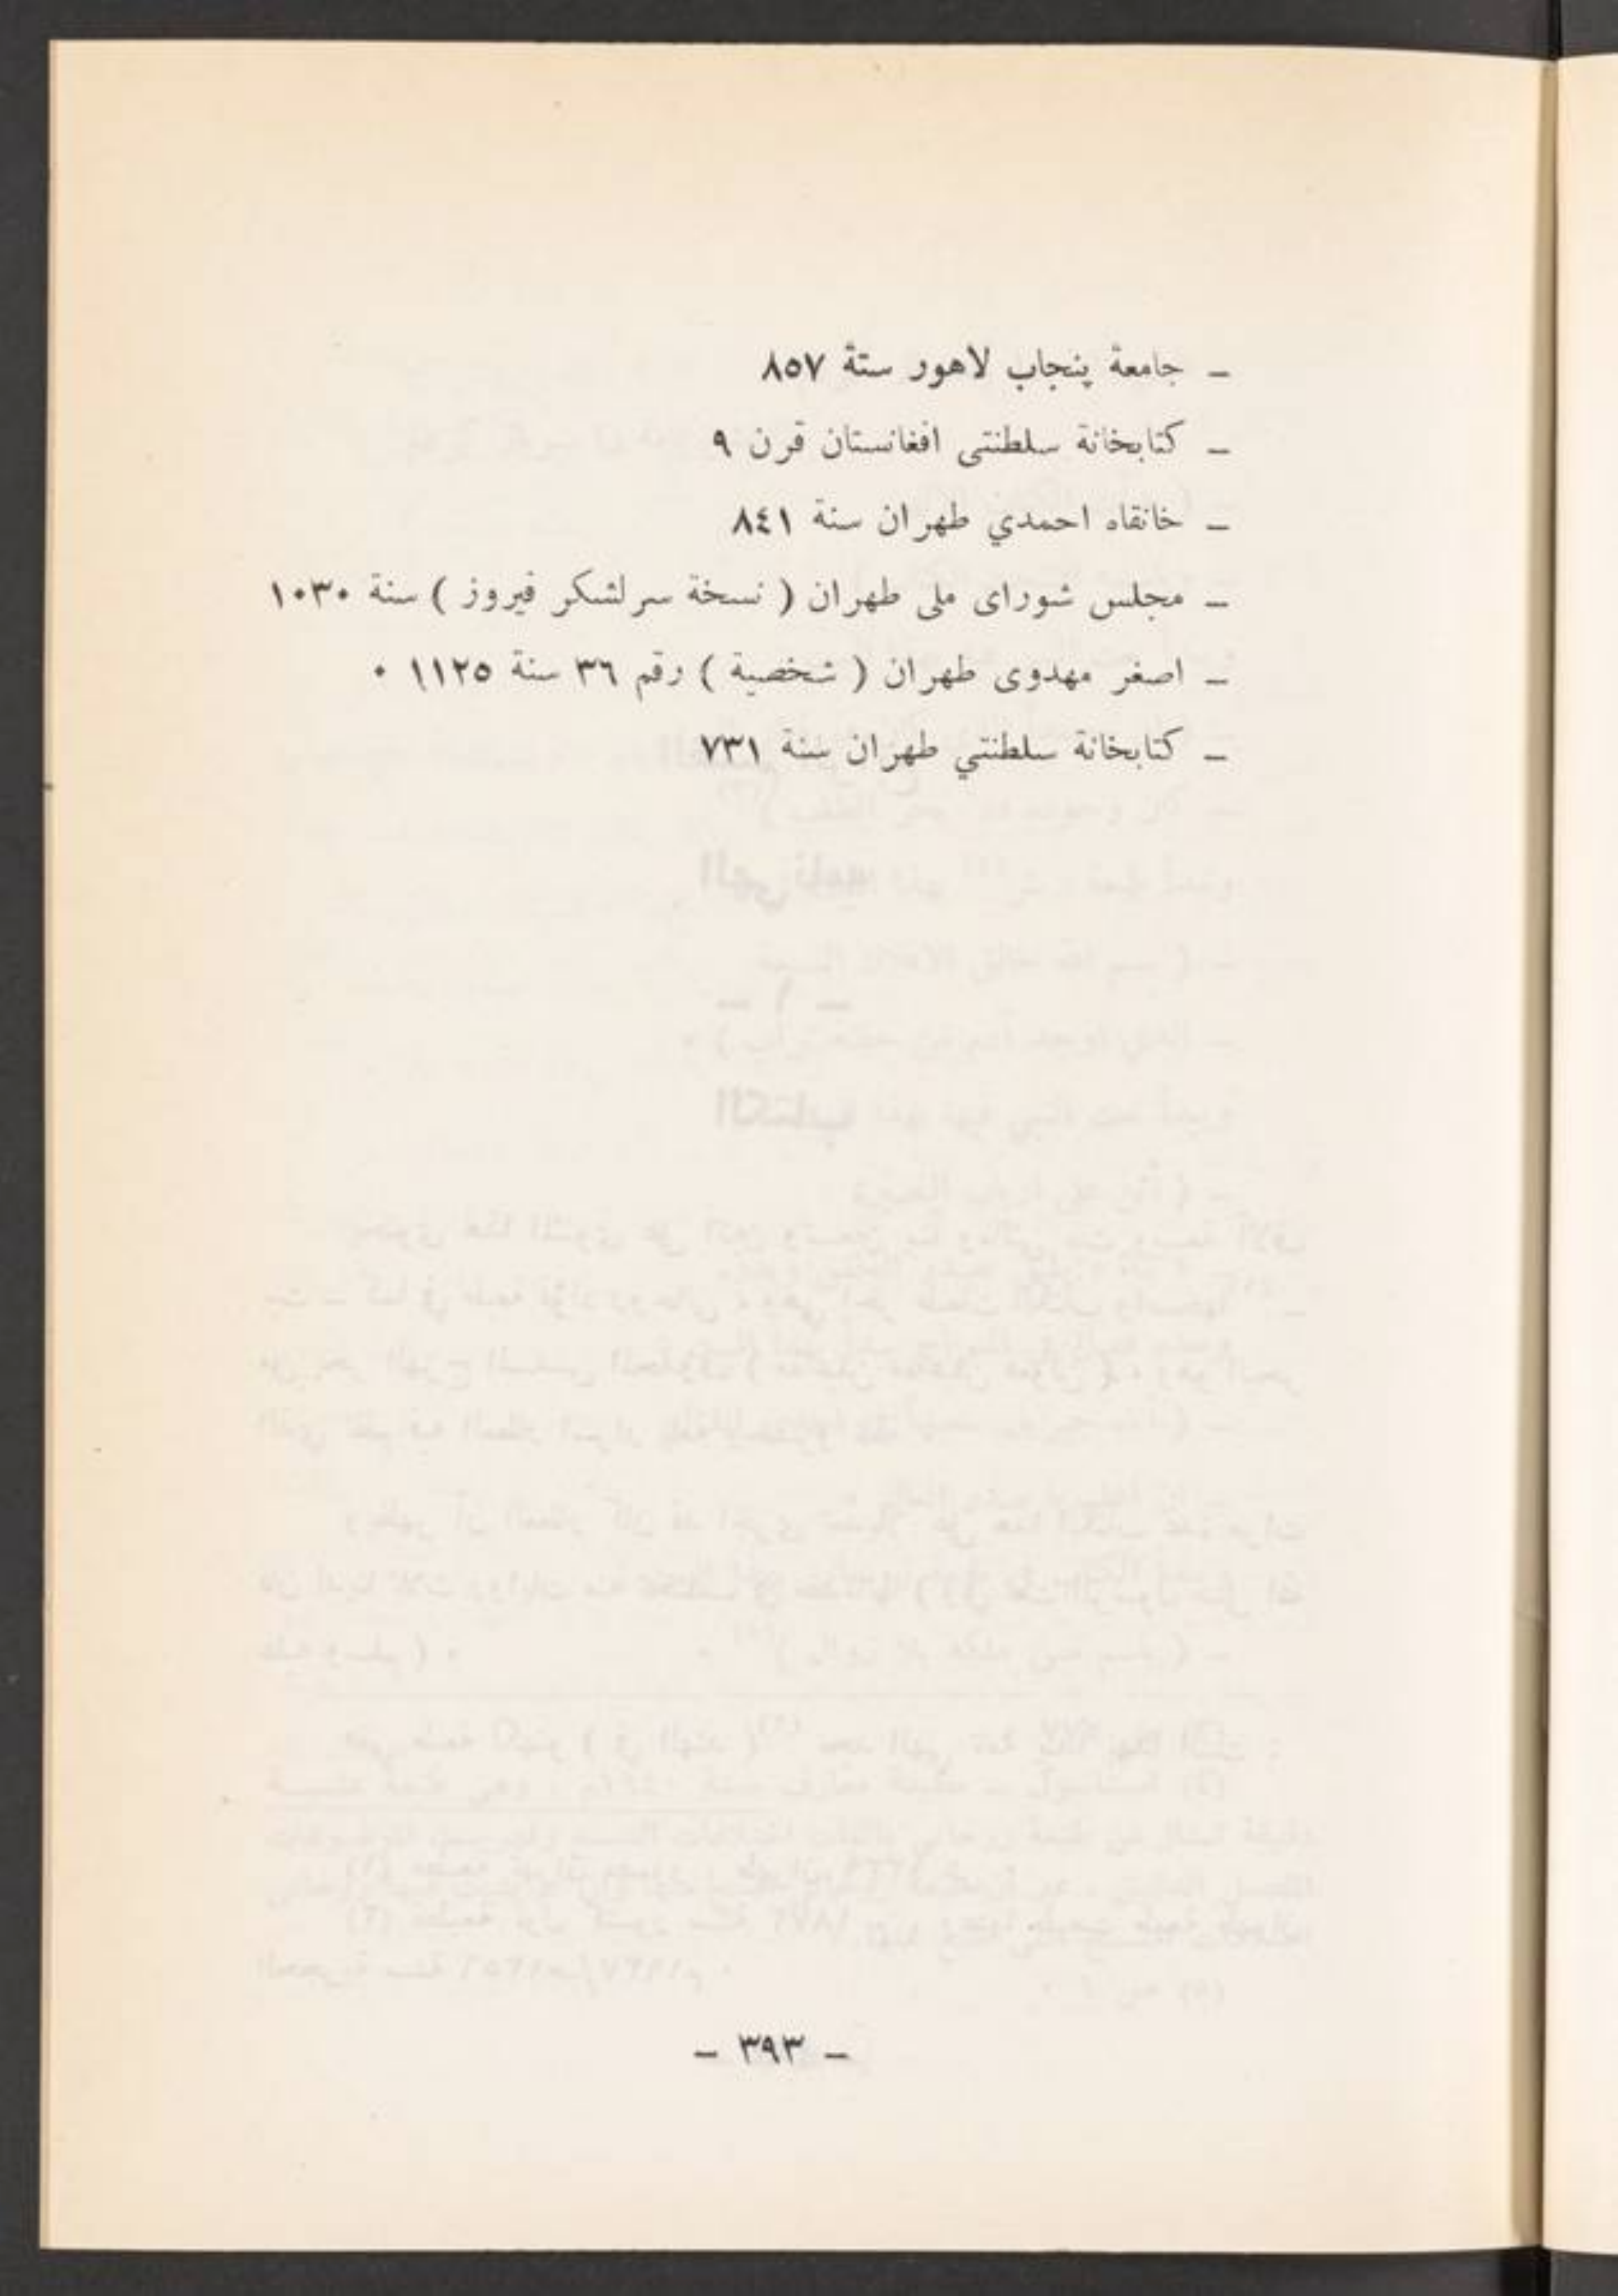 – جامعة پنجاب لاهور ستة ٨٥٧
– كتابخانة سلطنتى افغانستان قرن ٩
– خانقاه احمدي طهران سنة ٨٤١
– مجلس شوراى ملى طهران ( نسخة سرلشكر فيروز ) سنة ١٠٣٠
– اصغر مهدوى طهران ( شخصية ) رقم ٣٦ سنة ١١٢٥ ٠
– كتابخانة سلطنتي طهران سنة ٧٣١
– ٣٩٣ –